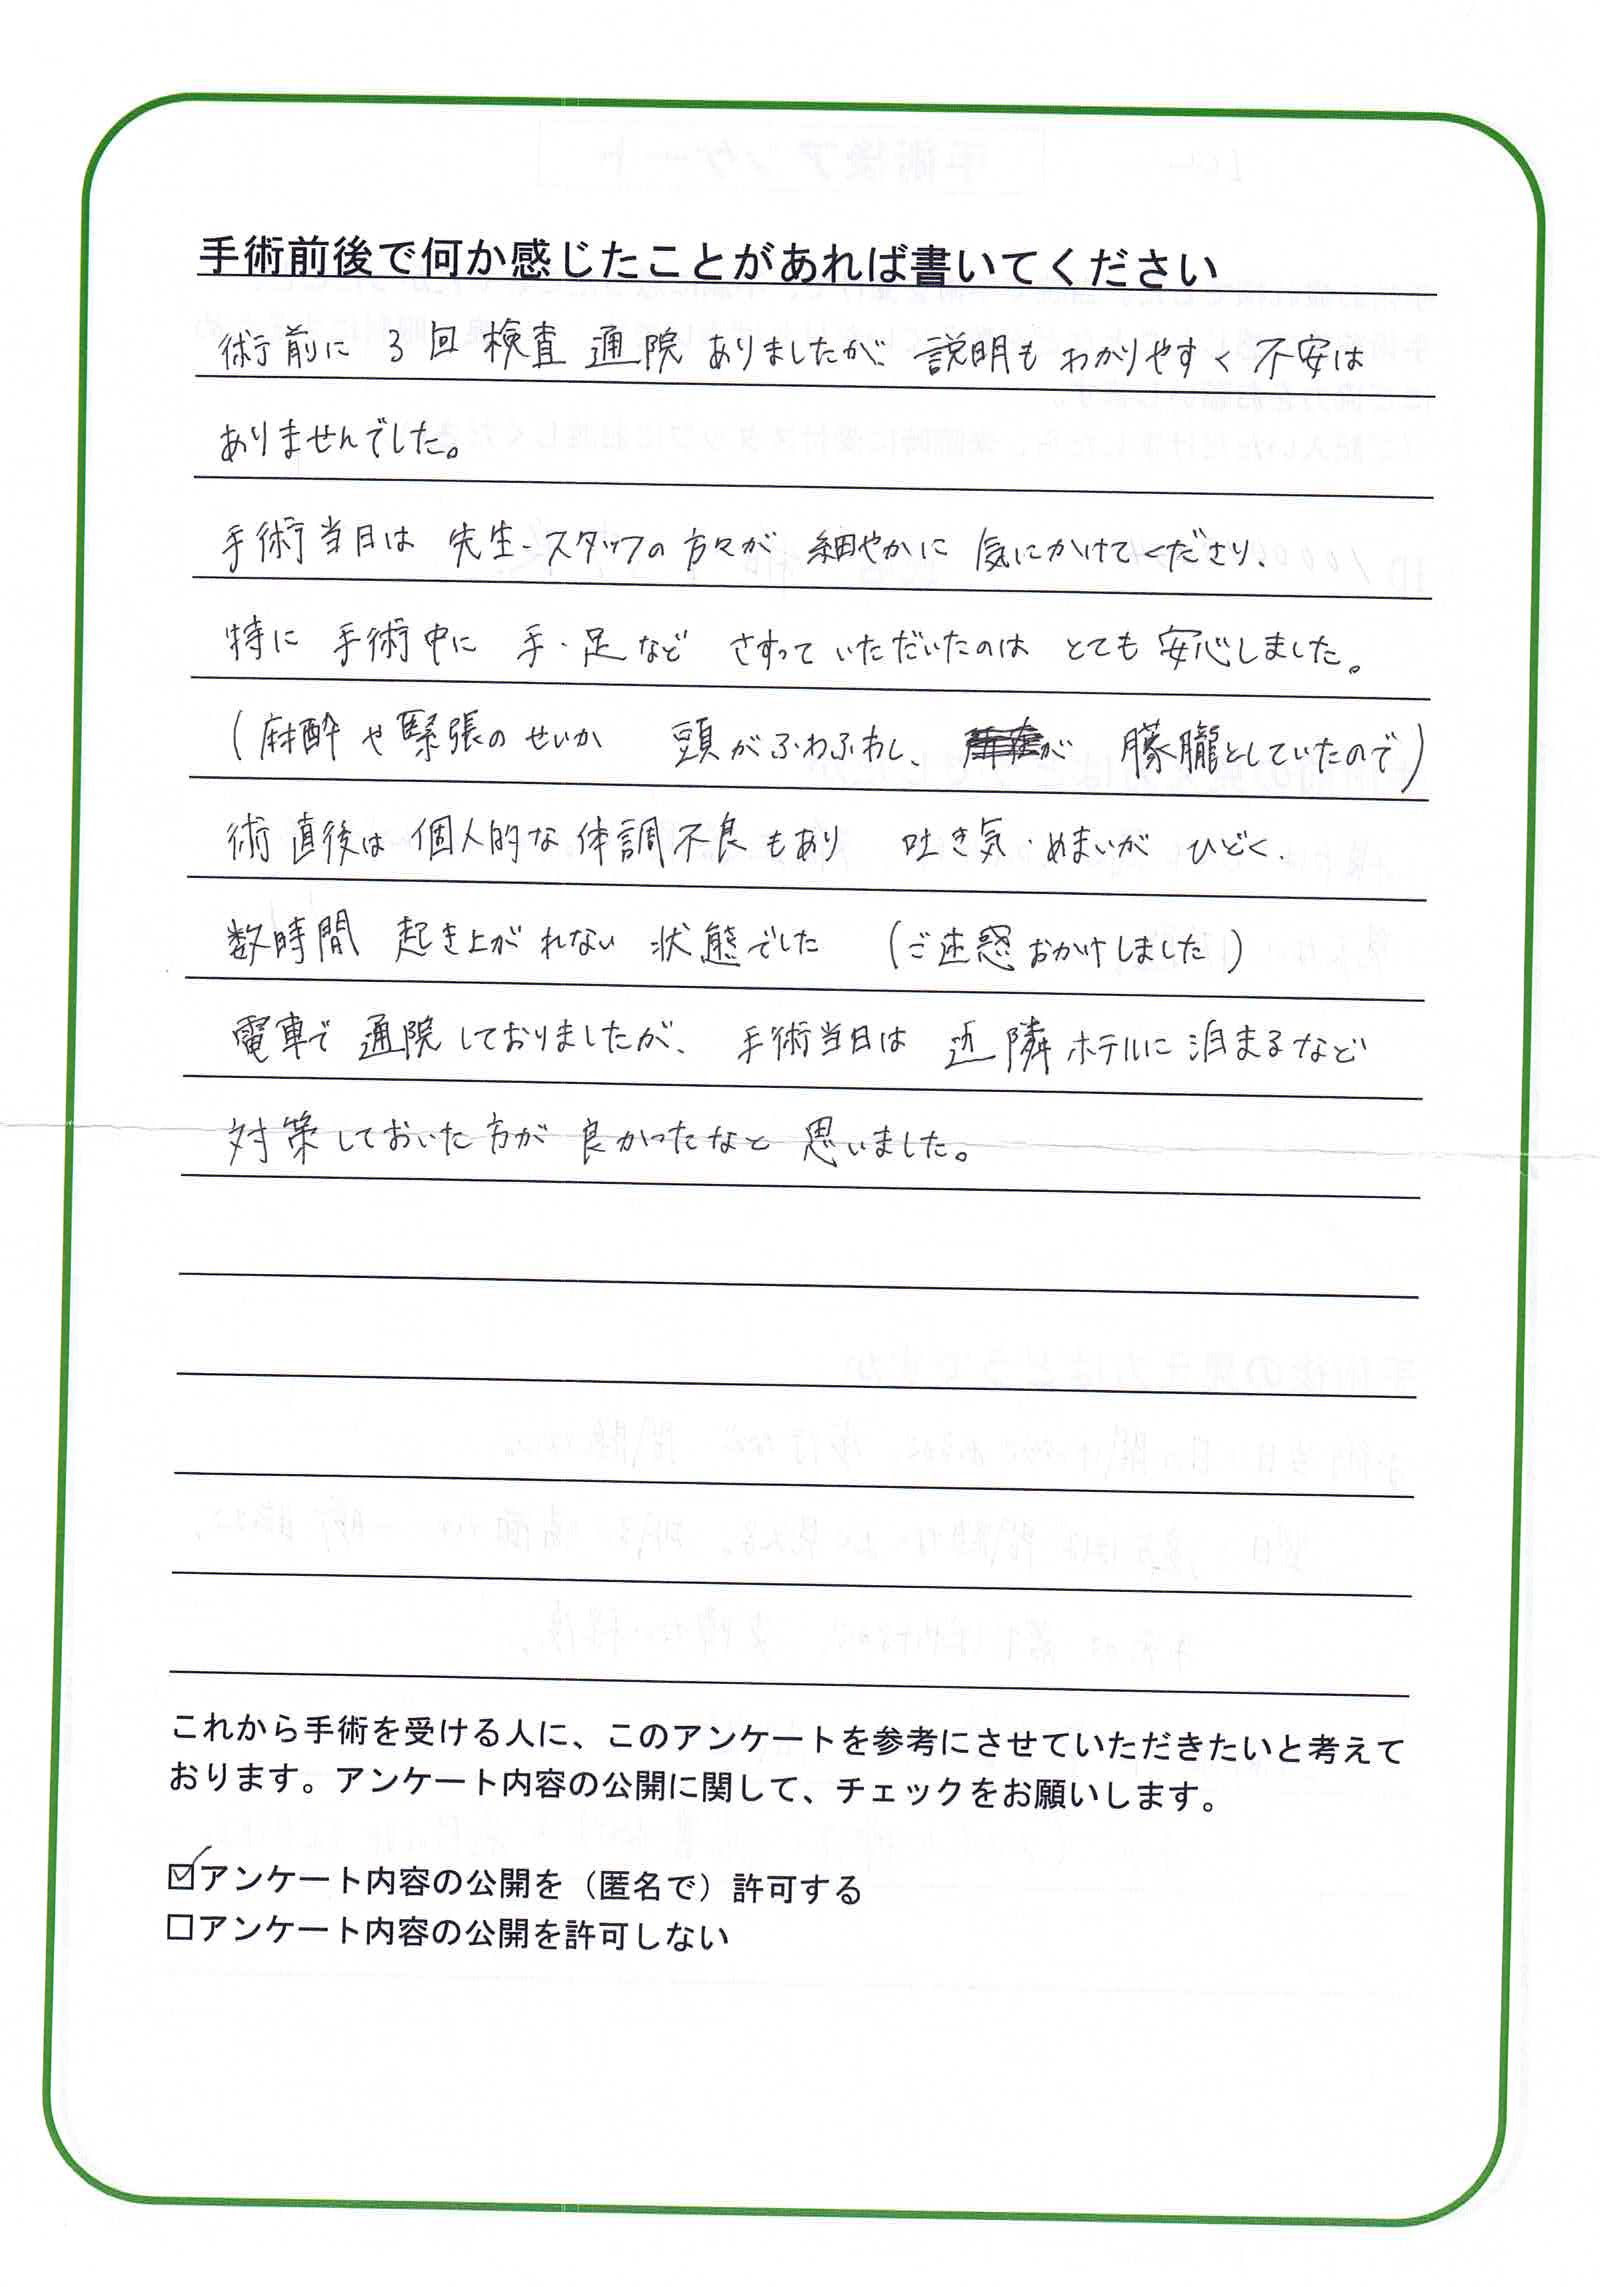 手術前後で何か感じたことがあれば書いてください
術前に 3回 検査 通院 ありましたが、説明も わかりやすく 不安は
ありませんでした。
手術当日は 先生・スタッフの 方々が 細やかに 気にかけてくださり、
特に 手術中に 手・足など さすって いただいたのは とても 安心しました。
(麻酔や緊張の せいか 頭がふわふわし、 が 朦朧としていたので)
術直後は 個人的な 体調不良もあり 吐き気・めまいが ひどく、
数時間 起き上がれない 状態でした (ご迷惑おかけしました)
電車で 通院しておりましたが、 手術当日は 近隣ホテルに 泊まるなど
対策しておいた方が 良かったなと 思いました。
これから手術を受ける人に、このアンケートを参考にさせていただきたいと考えて
おります。アンケート内容の公開に関して、チェックをお願いします。
☑アンケート内容の公開を（匿名で）許可する
□アンケート内容の公開を許可しない